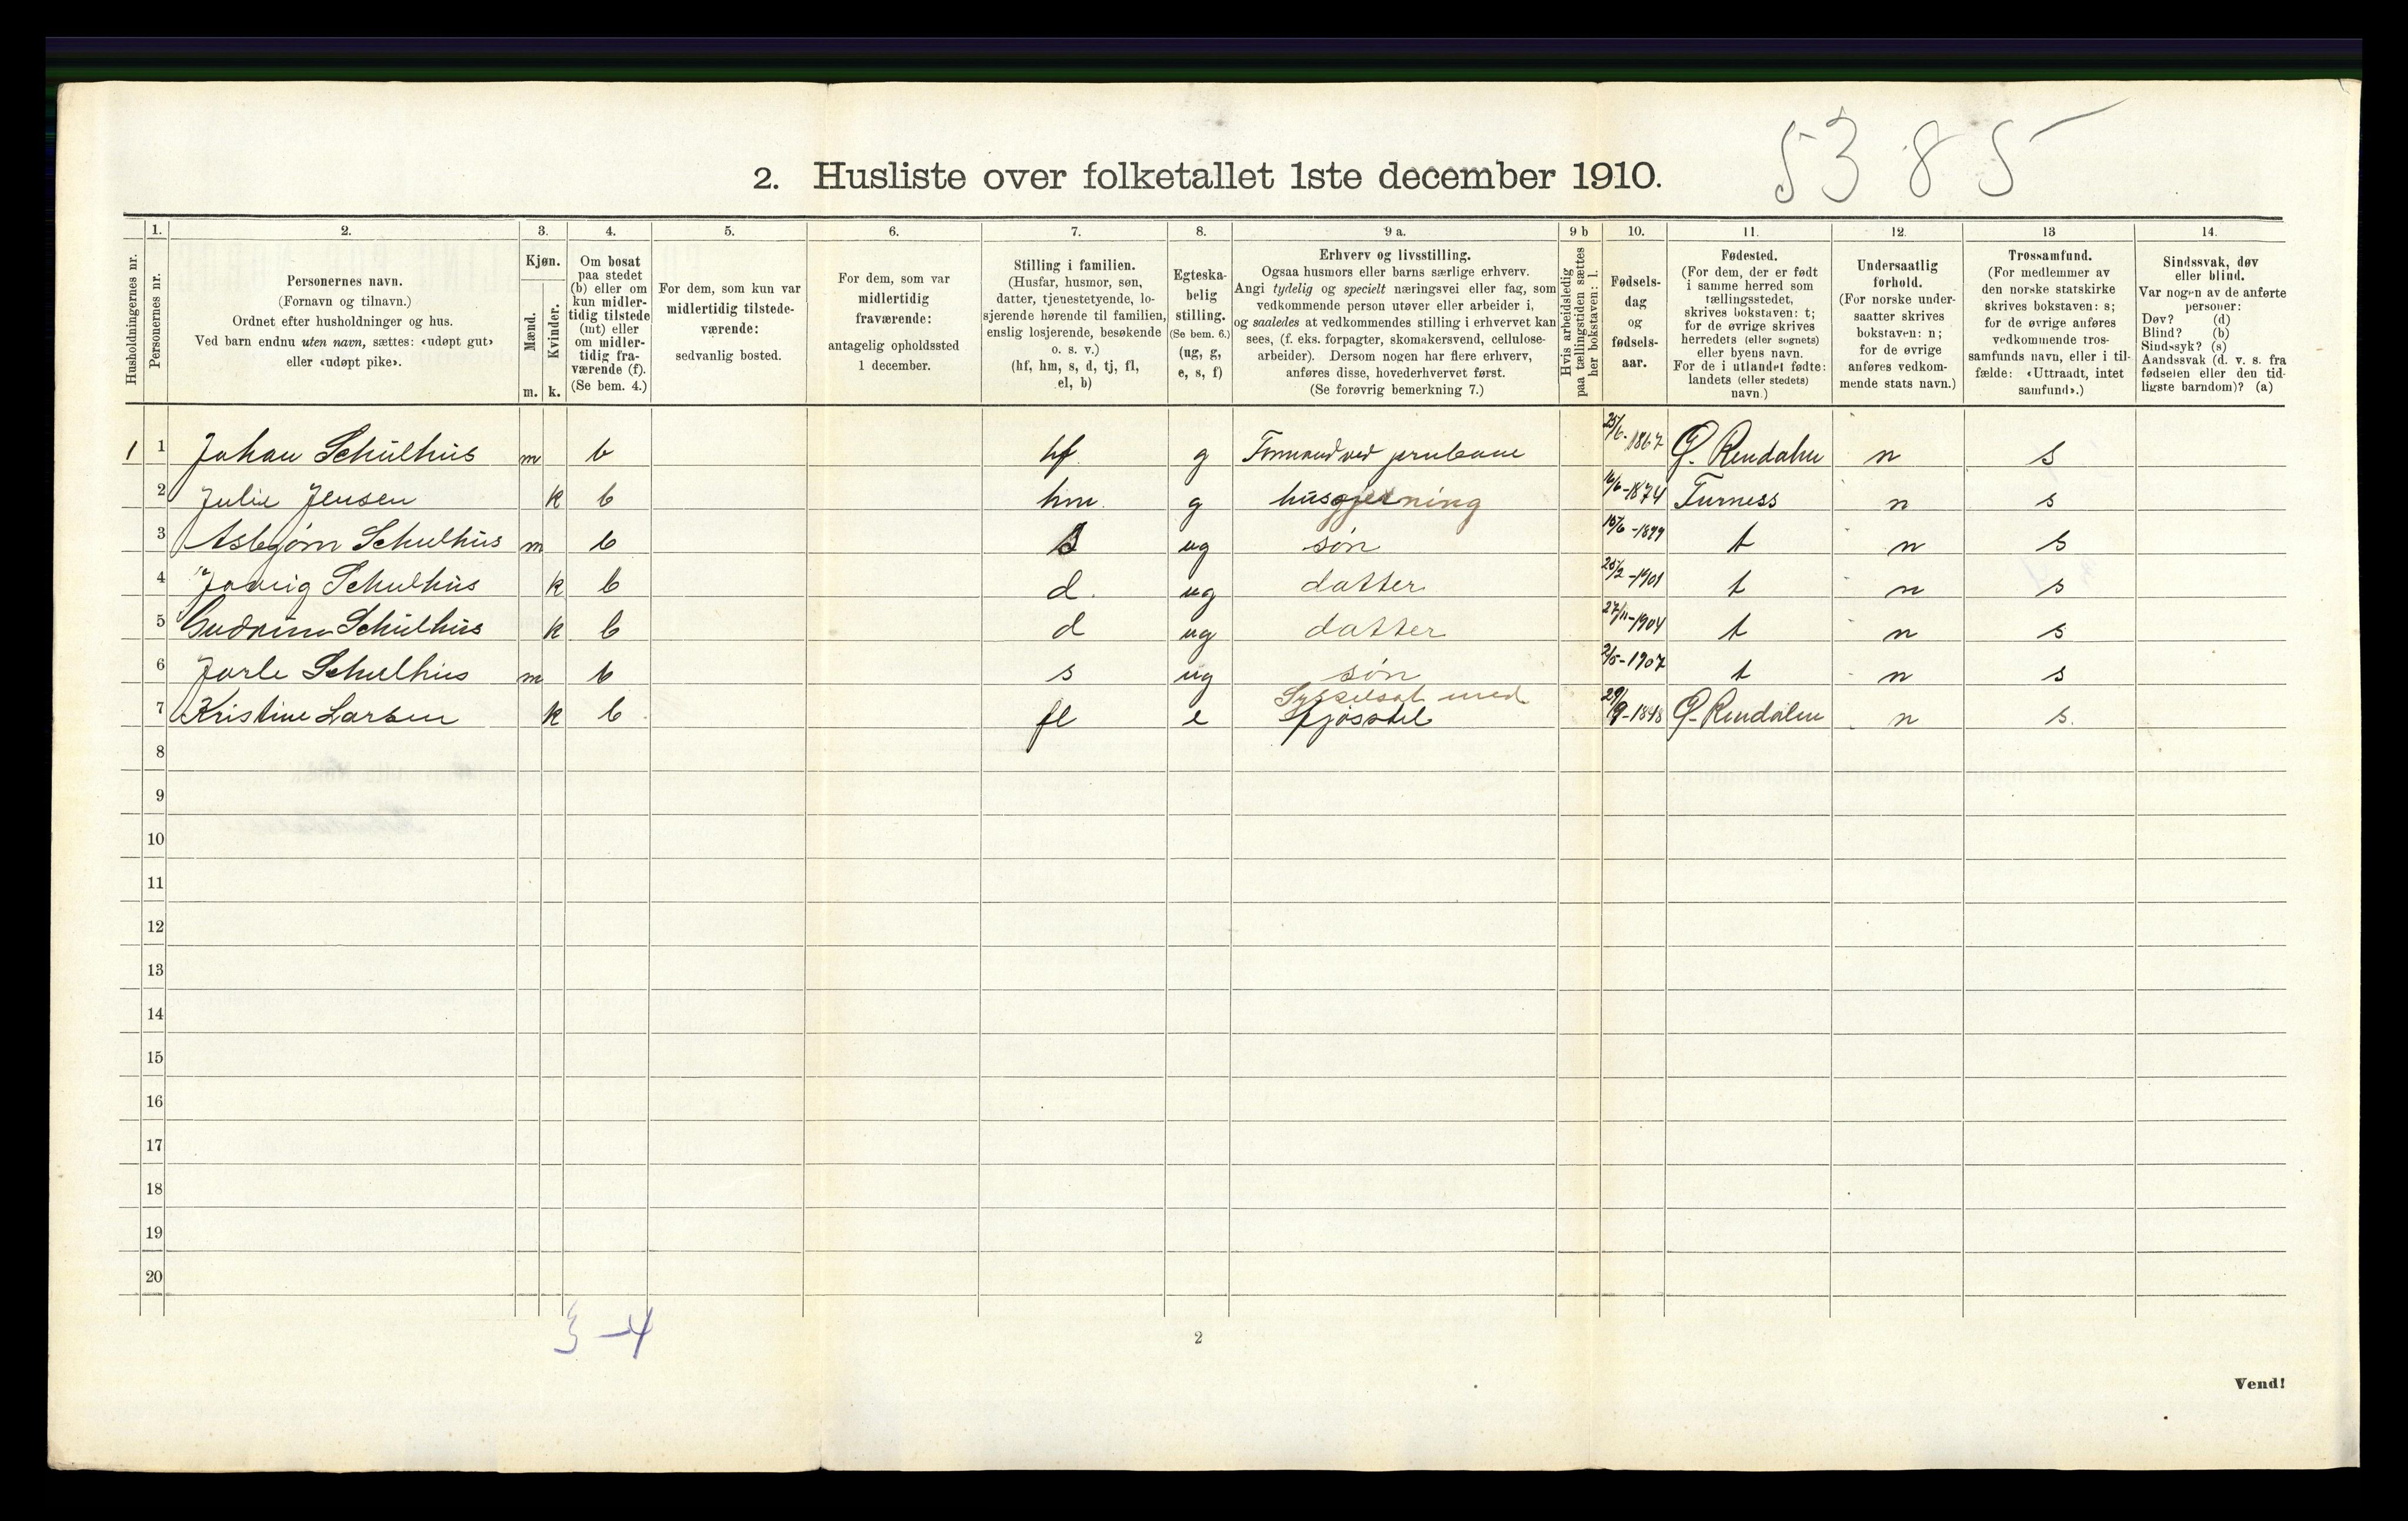 53 85
2. Husliste over folketallet 1ste december 1910.
Husholdningernes nr.
1.
Personernes nr.
2.
Personernes navn.
(Fornavn og tilnavn.)
Ordnet efter husholdninger og hus.
Ved barn endnu uten navn, sættes: «udøpt gut»
eller «udøpt pike».
3.
Kjøn.
Mænd.
Kvinder.
m. k.
4.
Om bosat
paa stedet
(b) eller om
kun midler-
tidig tilstede
(mt) eller
om midler-
tidig fra-
værende (f).
(Se bem. 4.)
5.
For dem, som kun var
midlertidig tilstede-
værende:
sedvanlig bosted.
6.
For dem, som var
midlertidig
fraværende:
antagelig opholdssted
1 december.
7.
Stilling i familien.
(Husfar, husmor, søn,
datter, tjenestetyende, lo-
sjerende hørende til familien,
enslig losjerende, besøkende
o. s. v.)
(hf, hm, s, d, tj, fl,
el, b)
8.
Egteska-
belig
stilling.
(Se bem. 6.)
(ug, g,
e, s, f)
9 a.
Erhverv og livsstilling.
Ogsaa husmors eller barns særlige erhverv.
Angi tydelig og specielt næringsvei eller fag, som
vedkommende person utøver eller arbeider i,
og saaledes at vedkommendes stilling i erhvervet kan
sees, (f. eks. forpagter, skomakersvend, cellulose-
arbeider). Dersom nogen har flere erhverv,
anføres disse, hovederhvervet først.
(Se forøvrig bemerkning 7.)
9 b
Hvis arbeidsledig
paa tællingstiden sættes
her bokstaven: l.
10.
Fødsels-
dag
og
fødsels-
aar.
11.
Fødested.
(For dem, der er født
i samme herred som
tællingsstedet,
skrives bokstaven: t;
for de øvrige skrives
herredets (eller sognets)
eller byens navn.
For de i utlandet fødte:
landets (eller stedets)
navn.)
12.
Undersaatlig
forhold.
(For norske under-
saatter skrives
bokstaven: n;
for de øvrige
anføres vedkom-
mende stats navn.)
13
Trossamfund.
(For medlemmer av
den norske statskirke
skrives bokstaven: s;
for de øvrige anføres
vedkommende tros-
samfunds navn, eller i til-
fælde: «Uttraadt, intet
samfund».)
14.
Sindssvak, døv
eller blind.
Var nogen av de anførte
personer:
Døv? (d)
Blind? (b)
Sindssyk? (s)
Aandssvak (d. v. s. fra
fødselen eller den tid-
ligste barndom)? (a)
1 1 Johan Schulhus m b hf. g Formand ved jernbane 25/6. 1867 Ø. Rendalen n s
2 Julie Jensen k b hm. g husgjerning 16/6-1874 Furness n s
3 Asbjørn Schulhus m b s ug søn 15/6-1899 t n s
4 Schulhus k b d. ug datter 25/2-1901 t n s
5 Gudrun Schulhus k b d ug datter 27/11-1904 t n s
6 Jarle Schulhus m b s ug søn 2/5-1907 t n s
7 Kristine Larsen k b fl e Sysselsat med fjøsstel 29/9-1848 Ø. Rendalen n s.
8
9
10
11
12
13
14
15
16
17
18
19
20
3-4
2
Vend!